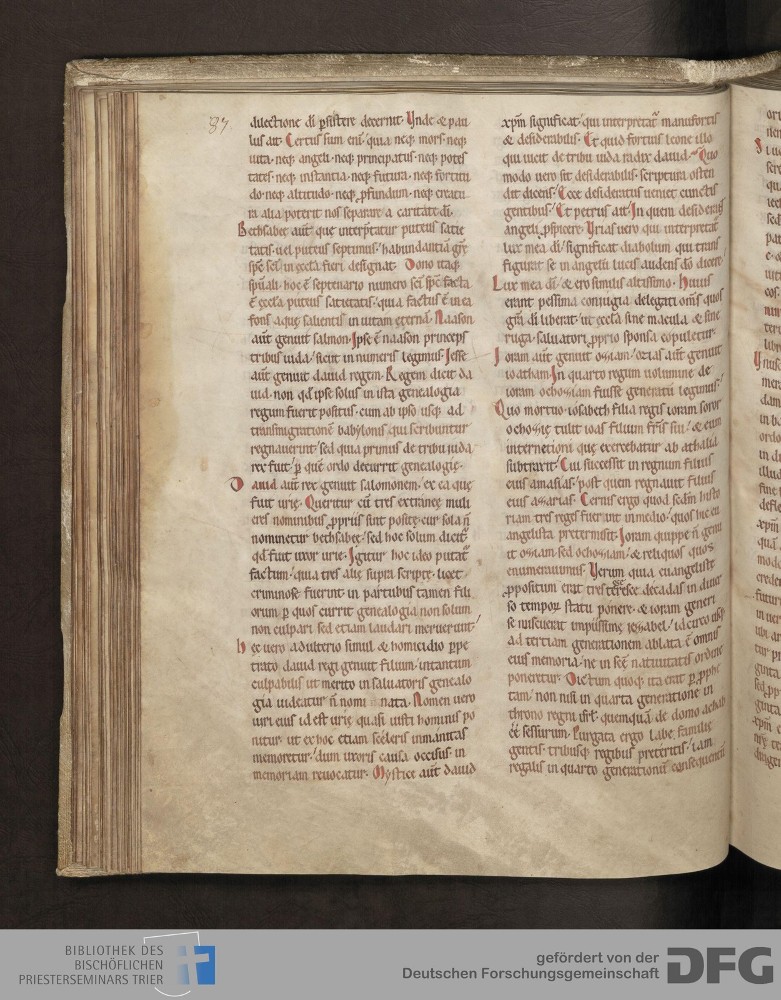 87.
dilectione di ꝑsistere decernit· Unde & pau
lus ait· Certus sum eni᷎ quia neq; mors· neq;
uita· neq; angeli· neq; principatus· neq; potes
tates· neq; instantia· neq; futura· neq; fortitu
do· neq; altitudo· neq; ꝓfundum· neq; creatu
ra alia poterit nos separare a caritate di·
Bethsabee aut̄ que interp̄tatur puteus satie
tatis· uel puteus septimus· habundantiā grē
spē sc̄i in eccl̄a fieri designat· Dono itaq;
spūali· hoc ē septenario numero sc̄i spē facta
ē eccl̄a puteus satietatis· quia factus ē in ea
fons aque salientis in uitam eternā· Naason
aut̄ genuit salmon· Ipse ē naason princeps
tribus iuda· sicut in numeris legimus· Iesse
aut̄ genuit dauid regem· Regem dicit da
uid· non qd̄ ipse solus in ista genealogia
regum fuerit positus· cum ab ipso usq; ad
transmigrationē babylonis qui scribuntur
regnauerint· sed quia primus de tribu iuda
rex fuit· ꝑ quē ordo decurrit genealogie·
Dauid aut̄ rex genuit salomonem· ex ea que
fuit urie· Queritur cū tres extrinee muli
eres nominibus ꝓpriis sint posite· cur sola n̄
nominetur bethsabee· sed hoc solum dicit᷎
qd̄ fuit uxor urie· Igitur hoc ideo putat᷎
factum· quia tres alie supra scripte· licet
criminose fuerint· in partubus tamen fili
orum ꝑ quos currit genealogia non solum
non culpari sed etiam laudari meruerunt·
Hec uero adulterio simul & homicidio ꝑpe
trato dauid regi genuit filium· intantum
culpabilis ut merito in saluatoris genealo
gia uideatur n̄ nominata· Nomen uero
uiri eius id est urie quasi iusti hominis po
nitur· ut ex hoc etiam sceleris inmanitas
memoretur· dum uxoris causa occisus· in
memoriam reuocatur· Mystice aut̄ dauid
xp̄m significat· qui interpretat᷎ manufortis
& desiderabilis· Et quid fortius leone illo
qui uicit de tribu iuda radix dauid· Quo
modo uero sit desiderabilis· scriptura osten
dit dicens· Ecce desideratus ueniet cunctis
gentibus· Et petrus ait· In quem desiderant
angeli ꝓspicere· Urias uero qui interpretat᷎
lux mea di· significat diabolum qui trans
figurat se in angelū lucis audens dō dicere·
Lux mea di· & ero similis altissimo· Huius
erant pessima coniugia delegati oms̄ quos
grā di liberat· ut eccl̄a sine macula & sine
ruga· saluatori ꝓprio sponsa copuletur·
Ioram aut̄ genuit osziam· ozias aut̄ genuit
ioatham· In quarto regum uolumine de
ioram ochosiam fuisse generatū legimus·
Quo mortuo· iosabeth filia regis ioram soror
ochozie tulit ioas filium fr̄is sui· & eum
internetioni que exercebatur ab athalia
subtraxit· Cui successit in regnum filius
eius amasias· post quem regnauit filius
eius azarias· Cernis ergo quod scdm̄ histo
riam tres reges fuerunt in medio· quos hic eu
angelista pretermisit· Ioram quippe n̄ genu
it osziam sed ochosiam· & reliquos quos
enumerauimus· Uerum quia euangeliste
ꝓpositum erat tres decadas in diuer
so tempor̄ statu ponere· & ioram generi
se miscuerat impiissime iezabel· idcirco usq;
ad tertiam generationem ablata ē omnis
eius memoria· ne in scē natiuitatis ordine
poneretur· Dictum quoq; ita erat ꝑ ꝓph̄e
tam· non nisi in quarta generatione in
throno regni isrl̄· quemquā de domo achab
ēē sessurum· Purgata ergo labe familie
gentis· tribusq; regibus preteritis· iam
regalis in quarto generationū consequenter